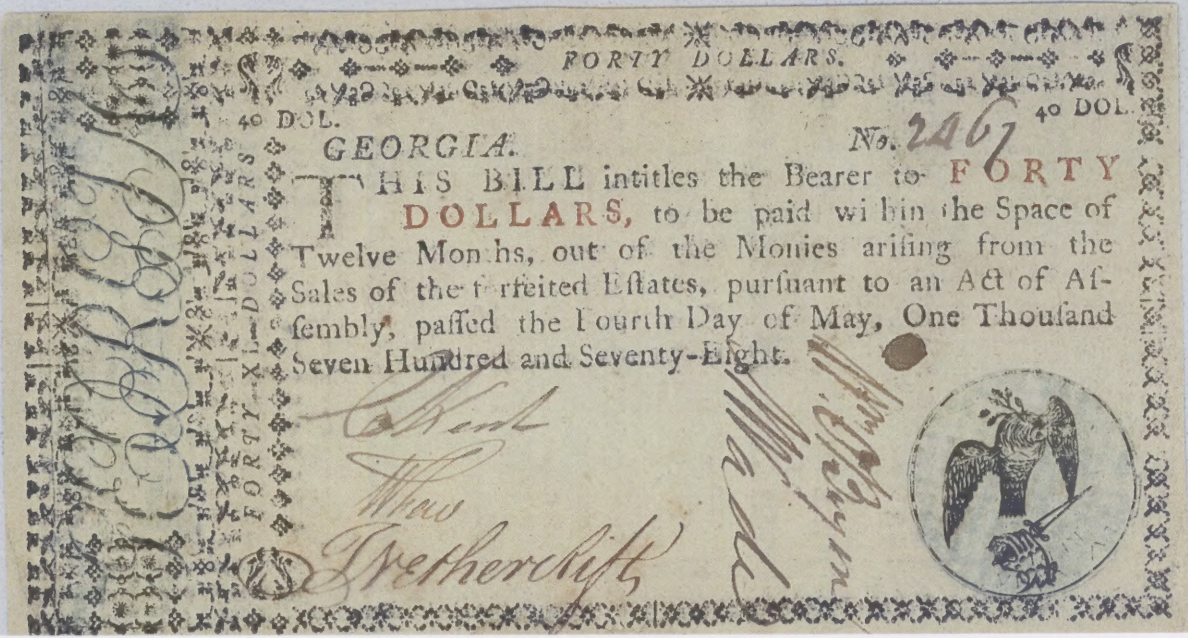 FORTY DOLLARS.
40 DOL. 40 DOL.
GEORGIA. No. 2467
THIS BILL intitles the Bearer to FORTY
DOLLARS, to be paid within the Space of
Twelve Months, out of the Monies ariſing from the
Sales of the forfeited Eſtates, purſuant to an Act of Aſ-
ſembly, paſſed the Fourth Day of May, One Thouſand
Seven Hundred and Seventy-Eight.
C Kent
Wade
Netherclift
FORTY DOLLARS